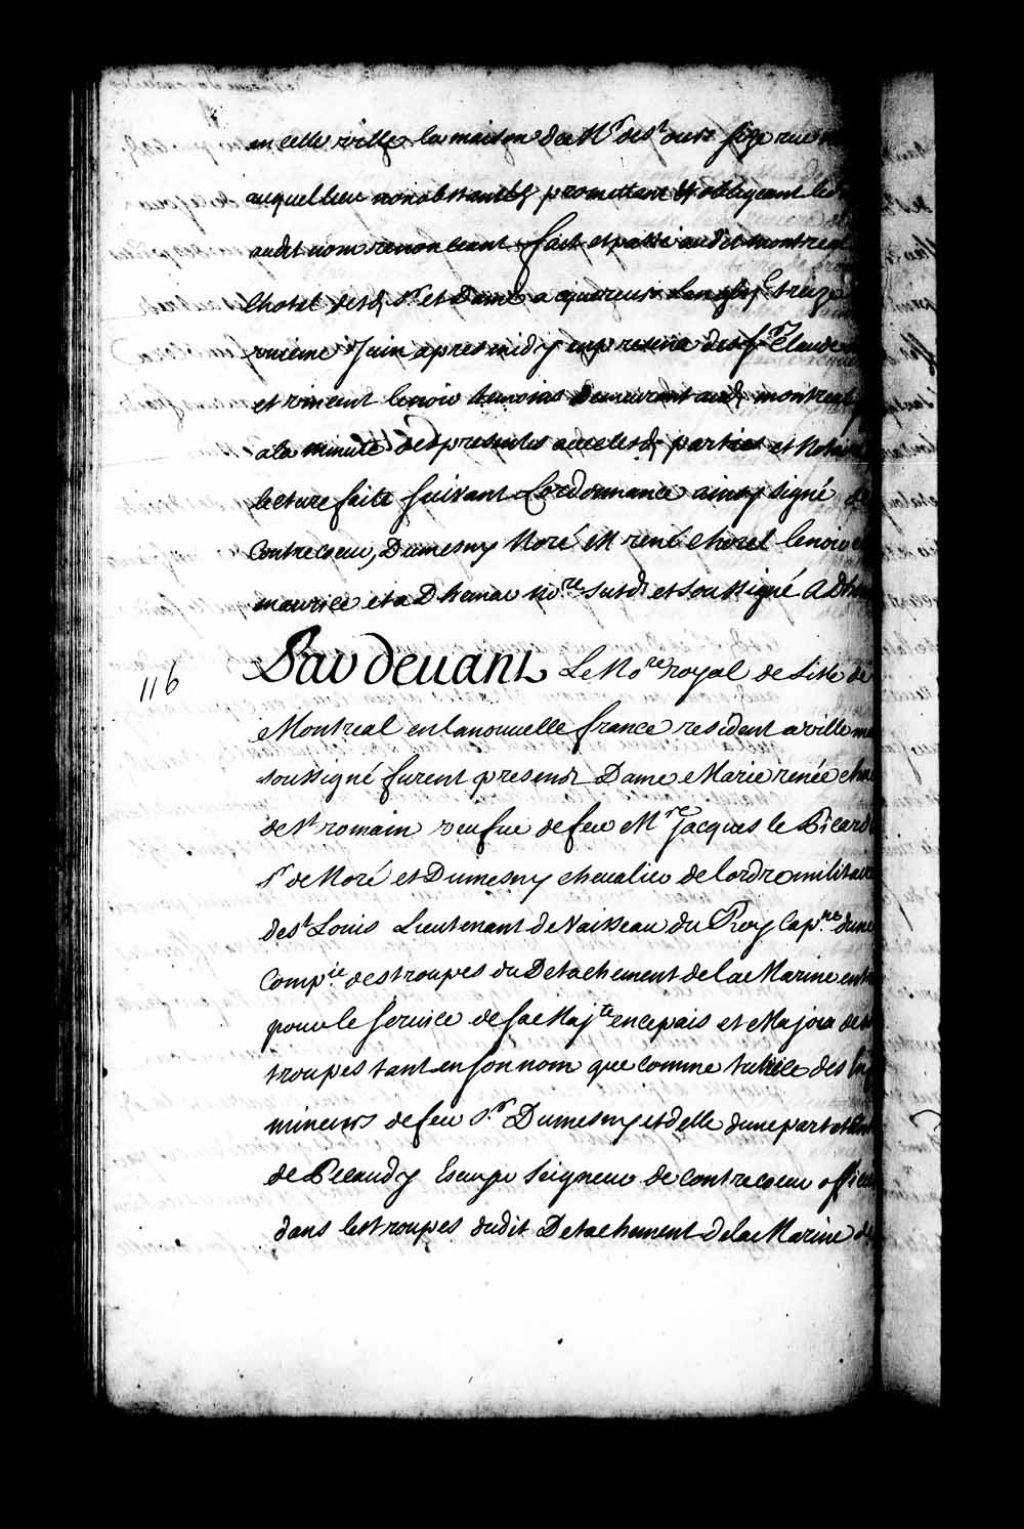 en celle ville la maison de Mr de St ours size rue
auquel lieu nonobstant &c promettant &c obligeant led
audit nom renonceant &c fait et passé audit montreal
lhotel desd Sr et Dame acquereurs Lan gbij C treize
vnieme Juin apres midy en presence des Srs Claude
et vincent lenoir temoins demeurant aud montreal
a la minutte des presentes avec lesd parties et No
lecture faite suivant Lordonnance ainsy signé de
Contrecoeur, Dumesny Noré M rené chorel lenoir
maurice et a Dhemar Nore susd et soussigné ADh
116
Par devant Le Nore royal de Lisle de
Montreal en la nouvelle france resident a ville m
soussigné furent presents Dame Marie renée cho
de St romain veufue de feu Mre Jacques le Picard
Sr de Noré et Dumesny chevalier de lordre militaire
de St Louis Lieutenant de Vaisseau du Roy Capne dune
Compie des troupes du Detachement de la Marine ent
pour le service de sa Majté en ce pais et Major des
troupes tant en son nom que comme tutrice des
mineurs de feu Sr Dumesny et delle dune part et
de Pecaudy Escuyer Seigneur de contrecoeur officier
dans les troupes dudit Detachement de la Marine de